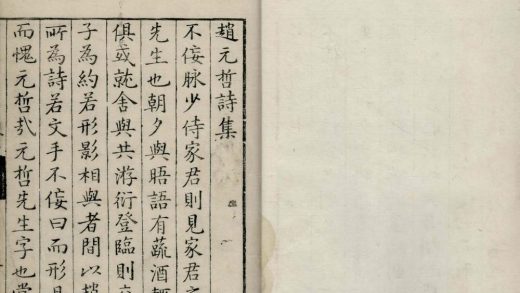 趙元哲詩集
不佞脉少侍家君則見家君
先生也朝夕與晤語有蔬酒
俱或就舍與共游衍登臨則
子為約若形影相與者間以趙
所為詩若文手不佞曰而形
而愧元哲哉元哲先生字也